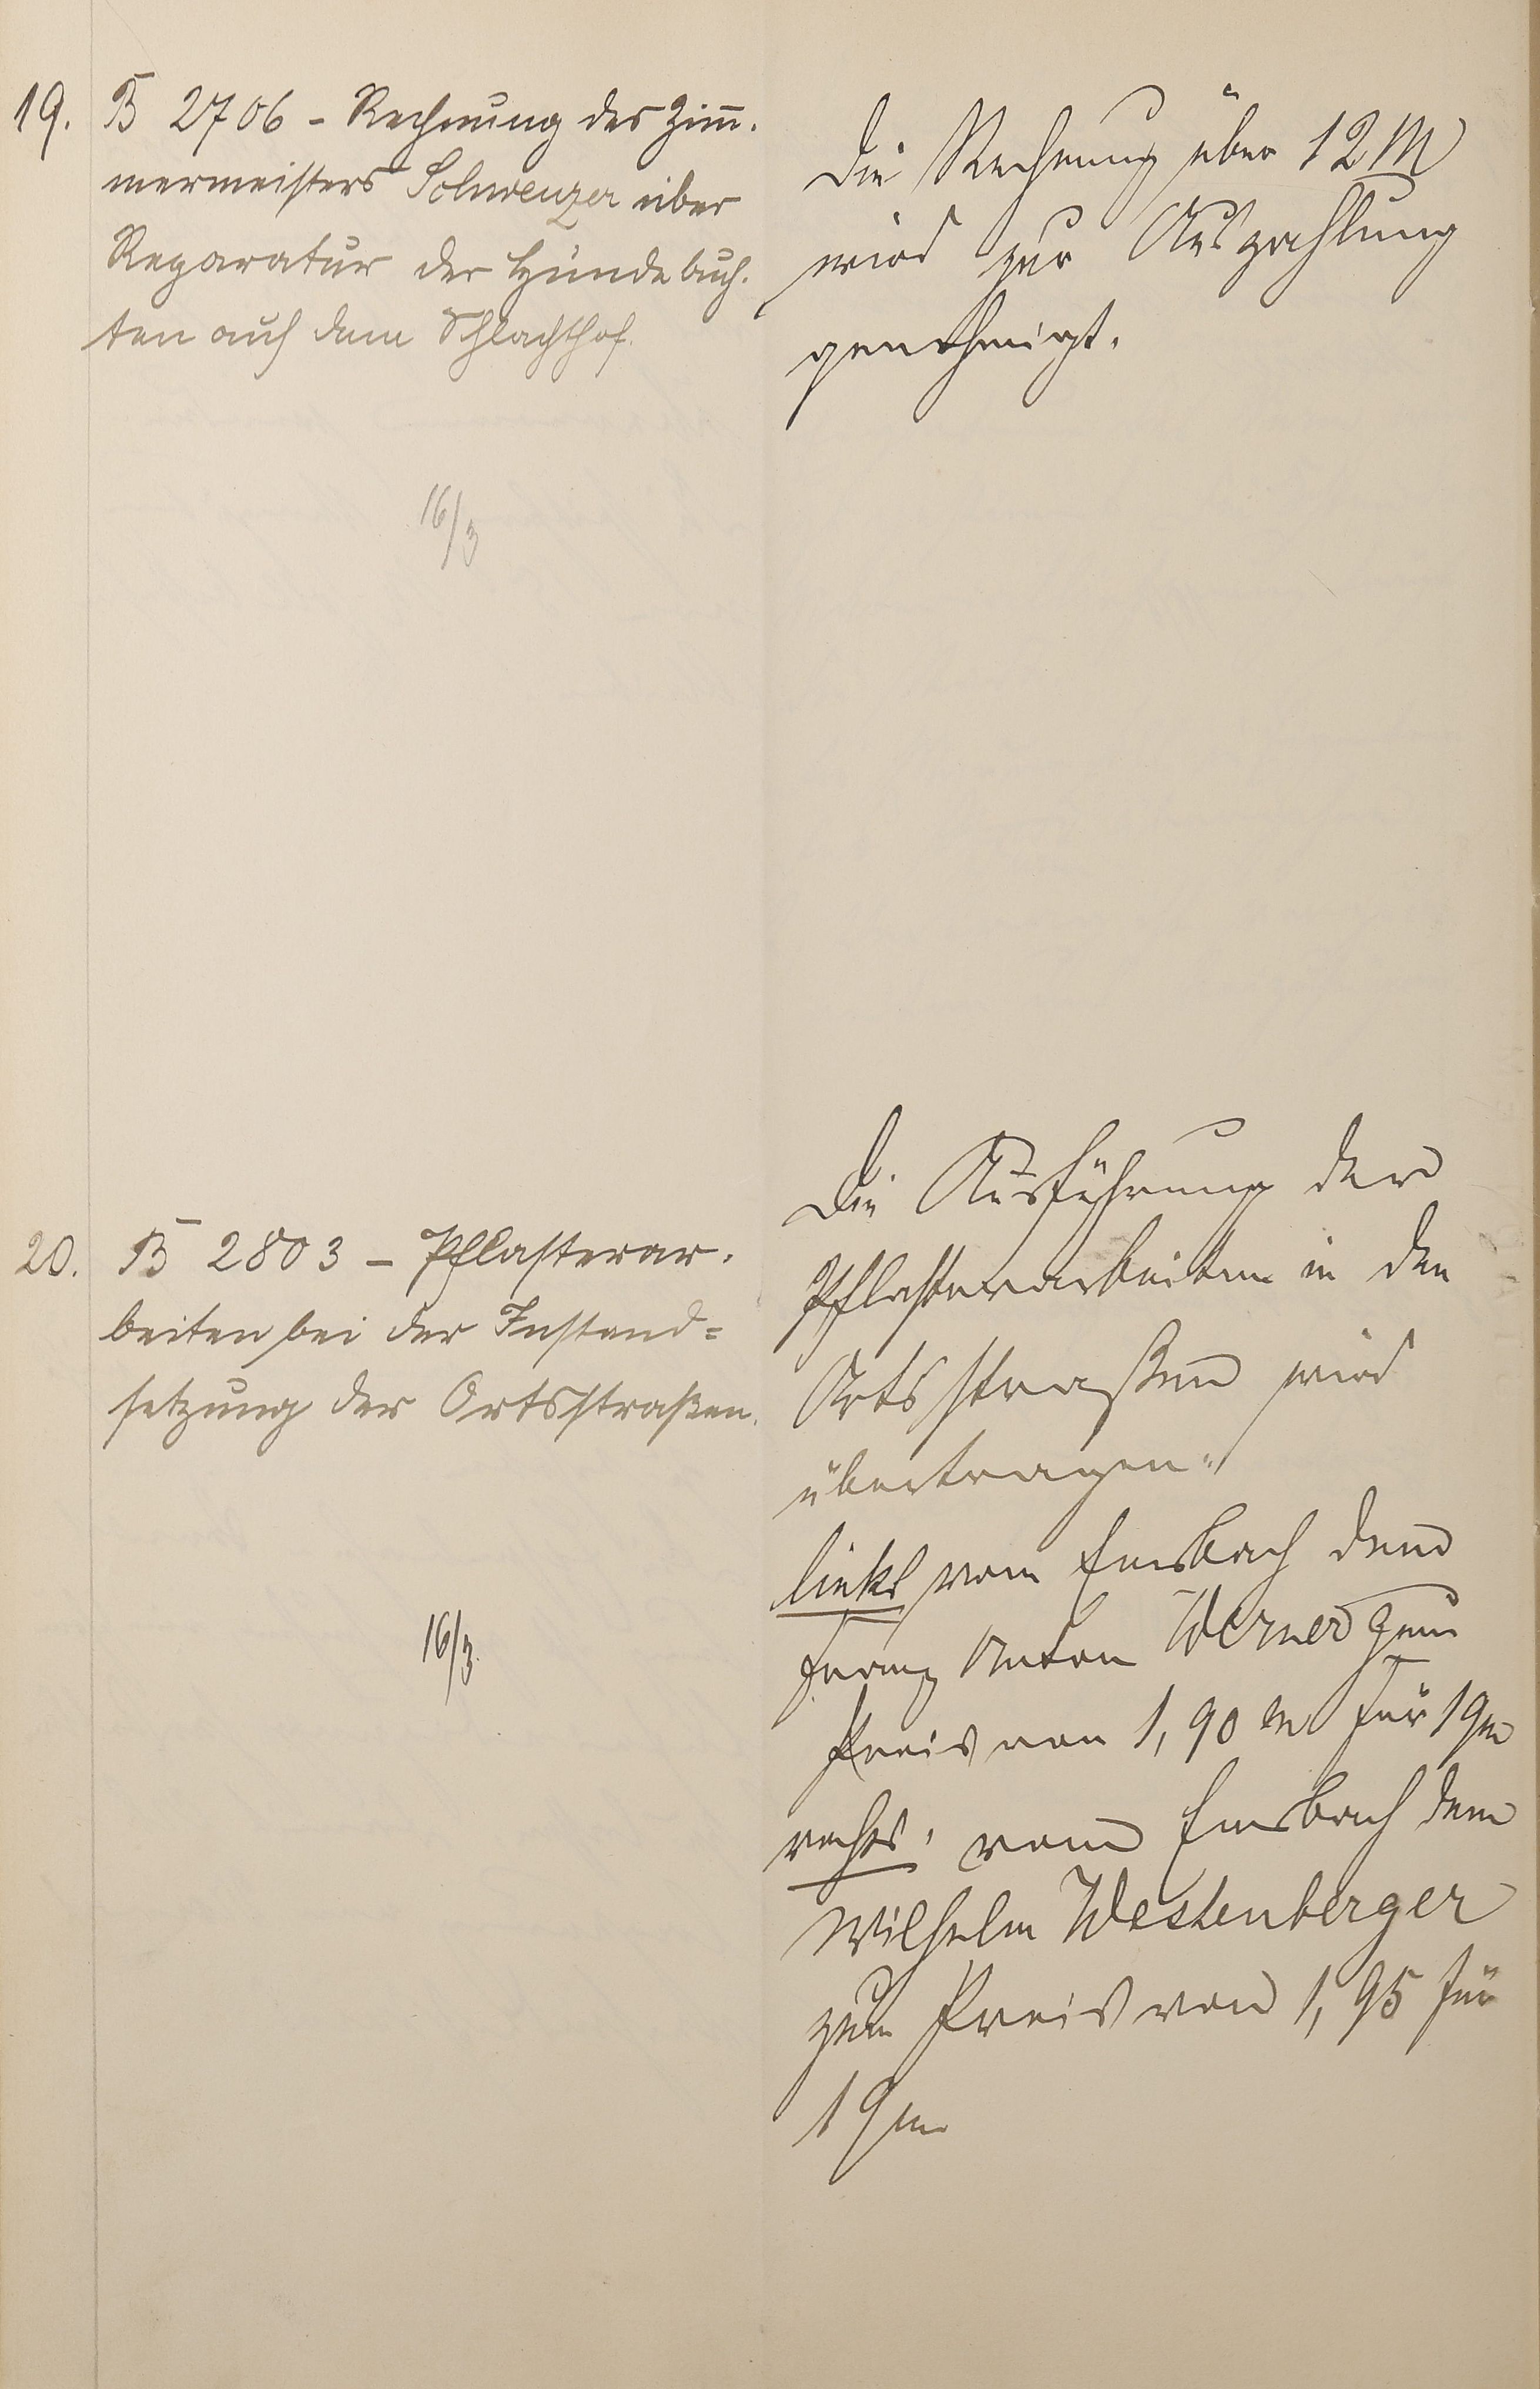 19. B 2706 - Rechnung des Zim̅-
mermeisters Schwenzer über
Reparatur der Hundebuch-
ten auf dem Schlachthof.
16/3
Die Rechnung über 12 M
wird zur Auszahlung
genehmigt.
20. B 2803 - Pflasterar-
beiten bei der Instand=
setzung der Ortsstraßen.
16/3.
Die Ausführung der
Pflasterarbeiten in den
Ortsstraßen wird
übertragen:
links vom Emsbach dem
Franz Anton Werner zum
Preis von 1,90 M für 1 qm
rechts, vom Emsbach dem
Wilhelm Westenberger
zum Preis von 1,95 für
1 qm